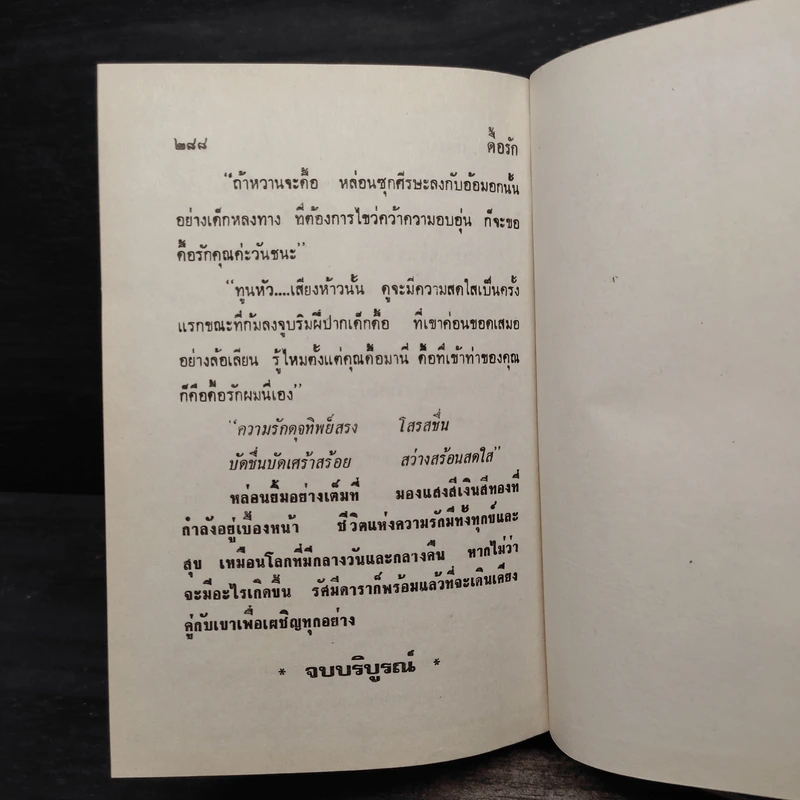 ๒๘๘ ดื้อรัก
“ถ้าหวานจะดื้อ หล่อนซุกศีรษะลงกับอ้อมอกนั้น
อย่างเด็กหลงทาง ที่ต้องการไขว่คว้าความอบอุ่น ก็จะขอ
ดื้อรักคุณค่ะวันชนะ”
“ทูนหัว....เสียงห้าวนั้น ดูจะมีความสดใสเป็นครั้ง
แรกขณะที่ก้มลงจูบริมฝีปากเด็กดื้อ ที่เขาค่อนขอดเสมอ
อย่างล้อเลียน รู้ไหมตั้งแต่คุณดื้อมานี่ ดื้อที่เข้าท่าของคุณ
ก็คือดื้อรักผมนี่เอง”
“ความรักดุจทิพย์สรง โสรสชื่น
บัดชื่นบัดเศร้าสร้อย สว่างสร้อนสดใส”
หล่อนยิ้มอย่างเต็มที่ มองแสงสีเงินสีทองที่
กำลังอยู่เบื้องหน้า ชีวิตแห่งความรักมีทั้งทุกข์และ
สุข เหมือนโลกที่มีกลางวันและกลางคืน หากไม่ว่า
จะมีอะไรเกิดขึ้น รัศมีดาราก็พร้อมแล้วที่จะเดินเคียง
คู่กับเขาเพื่อเผชิญทุกอย่าง
* จบบริบูรณ์ *